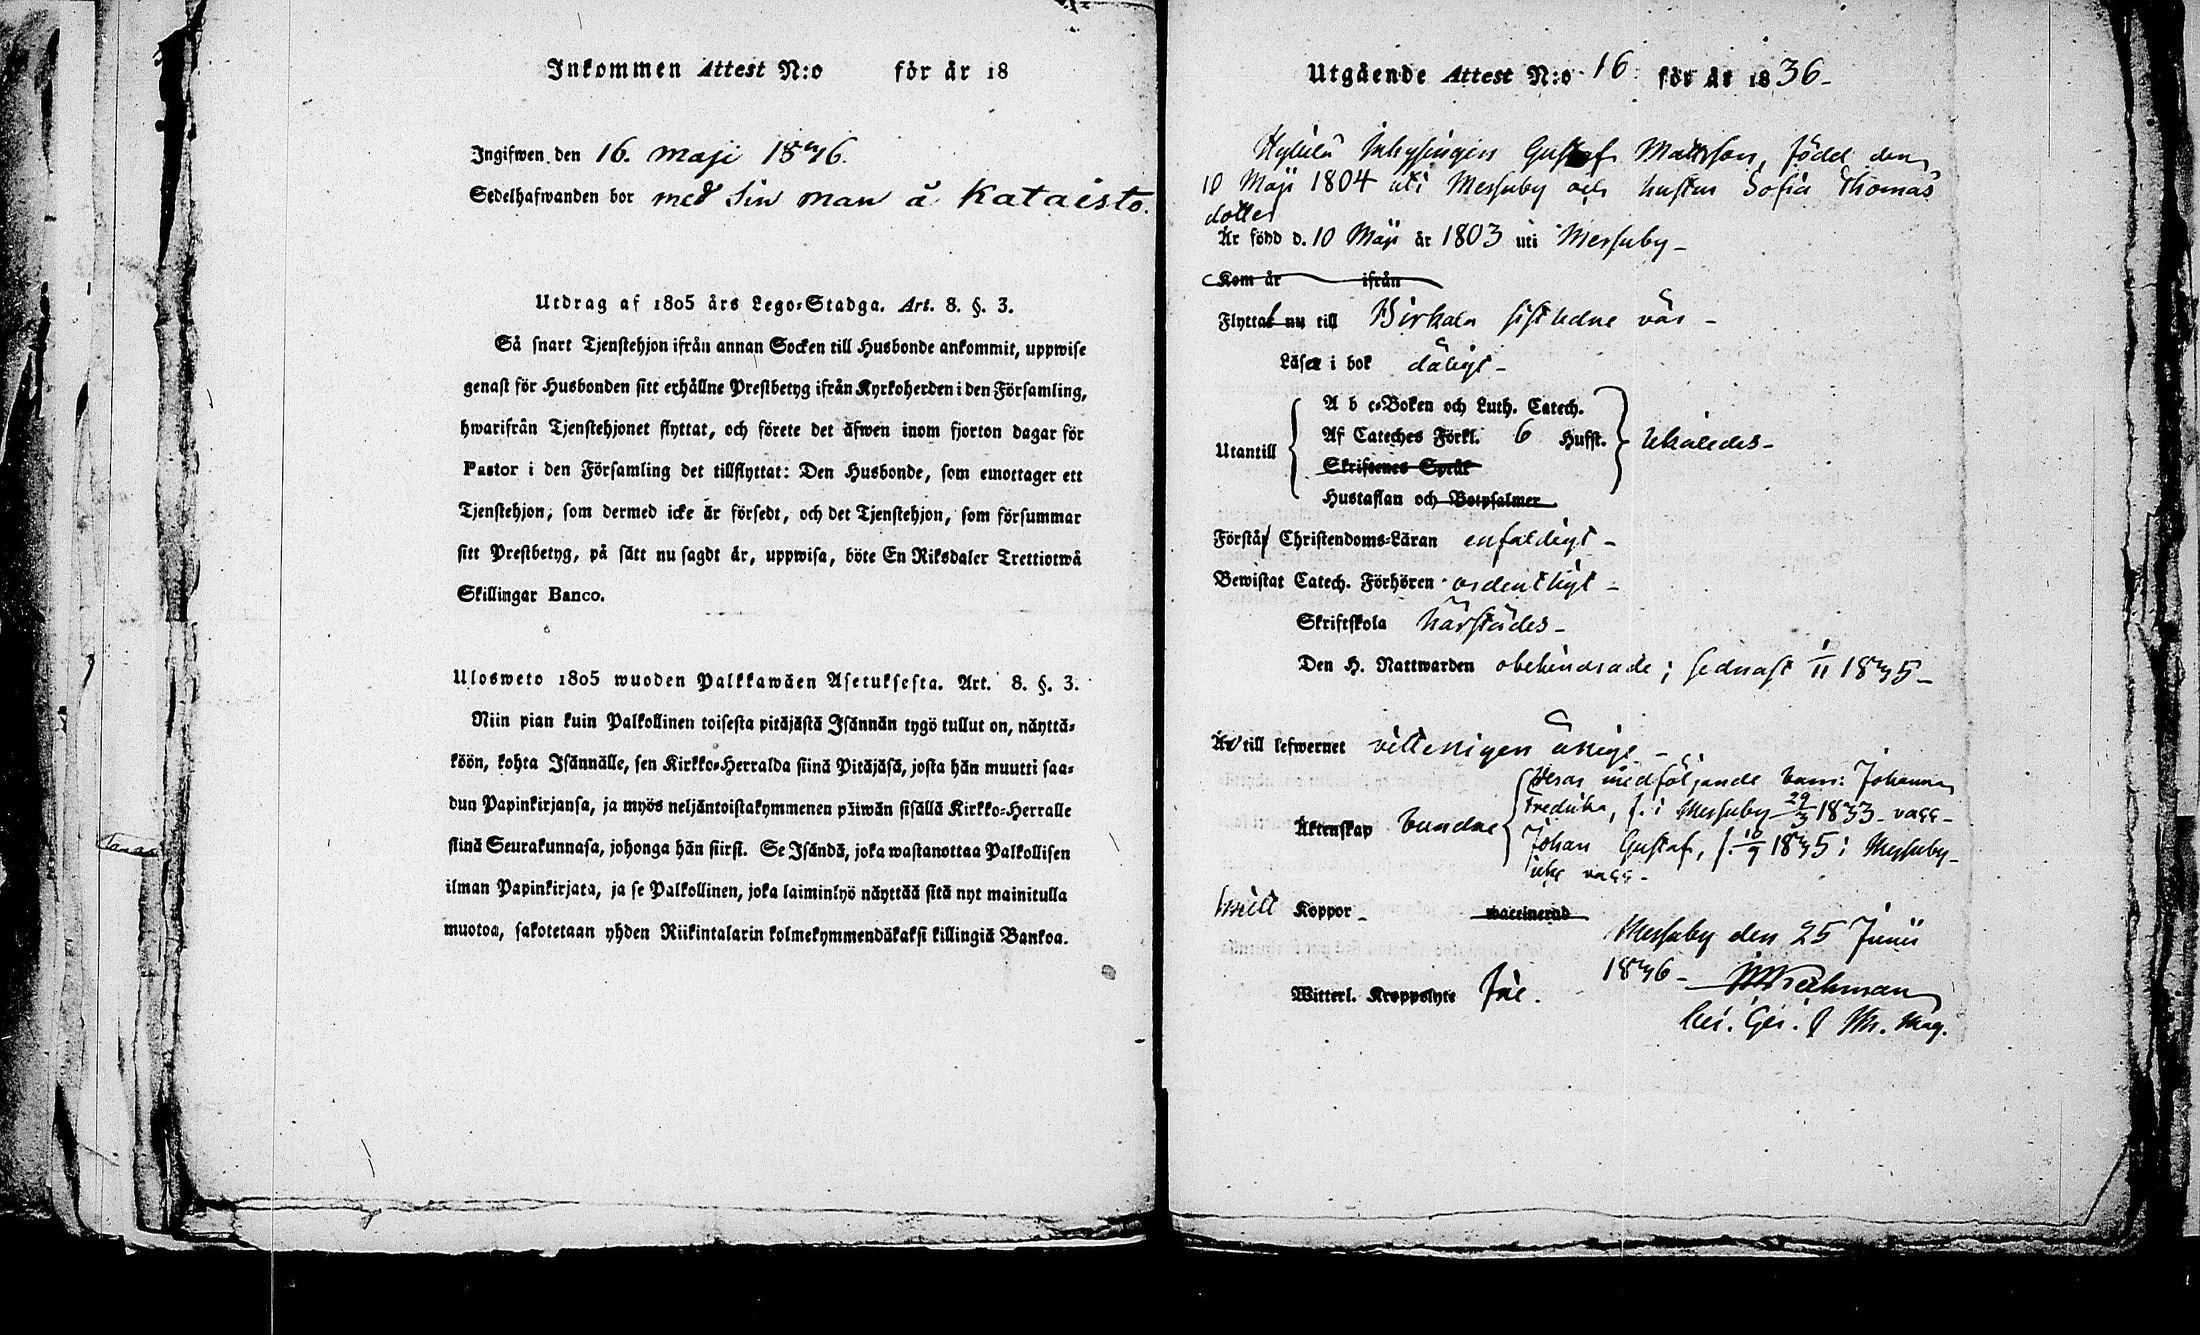 Inkommen Attest N:o för år 18
Ingifwen den 16. maji 1836.
Sedelhafwanden bor med sin man å Kataisto.
Utdrag af 1805 års Lego-Stadga. Art. 8. §. 3.
Så snart Tjenstehjon ifrån annan Socken till Husbonde ankommit, uppwise
genast för Husbonden sitt erhållne Prestbetyg ifrån Kyrkoherden i den Församling,
hwarifrån Tjenstehjonet flyttat, och förete det äfwen inom fjorton dagar för
Pastor i den Församling det tillflyttat: Den Husbonde, som emottager ett
Tjenstehjon, som dermed icke är försedt, och det Tjenstehjon, som försummar
sitt Prestbetyg, på sätt nu sagdt är, uppwisa, böte En Riksdaler Trettiotwå
Skillingar Banco.
Ulosweto 1805 wuoden Palkkawäen Asetuksesta. Art. 8. §. 3.
Niin pian kuin Palkollinen toisesta pitäjästä Isännän tygö tullut on, näyttä-
köön, kohta Isännälle, sen Kirkko-Herralda siinä Pitäjäsä, josta hän muutti saa-
dun Papinkirjansa, ja myös neljäntoistakymmenen päiwän sisällä Kirkko-Herralle
siinä Seurakunnasa, johonga hän siirsi. Se Isändä, joka wastanottaa Palkollisen
ilman Papinkirjata, ja se Palkollinen, joka laiminlyö näyttää sitä nyt mainitulla
muotoa, sakotetaan yhden Riikintalarin kolmekymmendäkaksi killingiä Bankoa.
Utgående Attest N:o 16 för år 1836-
Inhysingen Gustaf Mattsson, född den
10 Maji 1804 uti Messuby och hustru Sofia Thomas
dotter
Är född d. 10 Maji år 1803 uti Messuby-
Kom år ifrån
Flyttat nu till Birkala sistledne vår -
Läser i bok dåligt-
A b c-Boken och Luth. Catech.
Utantill Af Cateches Förkl. 6 Hufst. likaledes-
Skriftenes Språk
Hustaflan och Botpsalmer
Förstår Christendoms-Läran enfaldigt -
Bewistat Catech. Förhören ordentligt -
Skriftskola härstädes-
Den H. Nattwarden obehindrade; sednast 1/11 1835-
Är till lefwernet
Deras medföljande barn: Johanna
Fredrika, f. i Messuby 29/3 1833- vacc-
Äktenskap bundne
Johan Gustaf, f. 10/9 1835 i Messuby-
icke vacc-
haft Koppor- waccinerad
Messuby den 25 Junii
1836-
Witterl. Kroppslyte